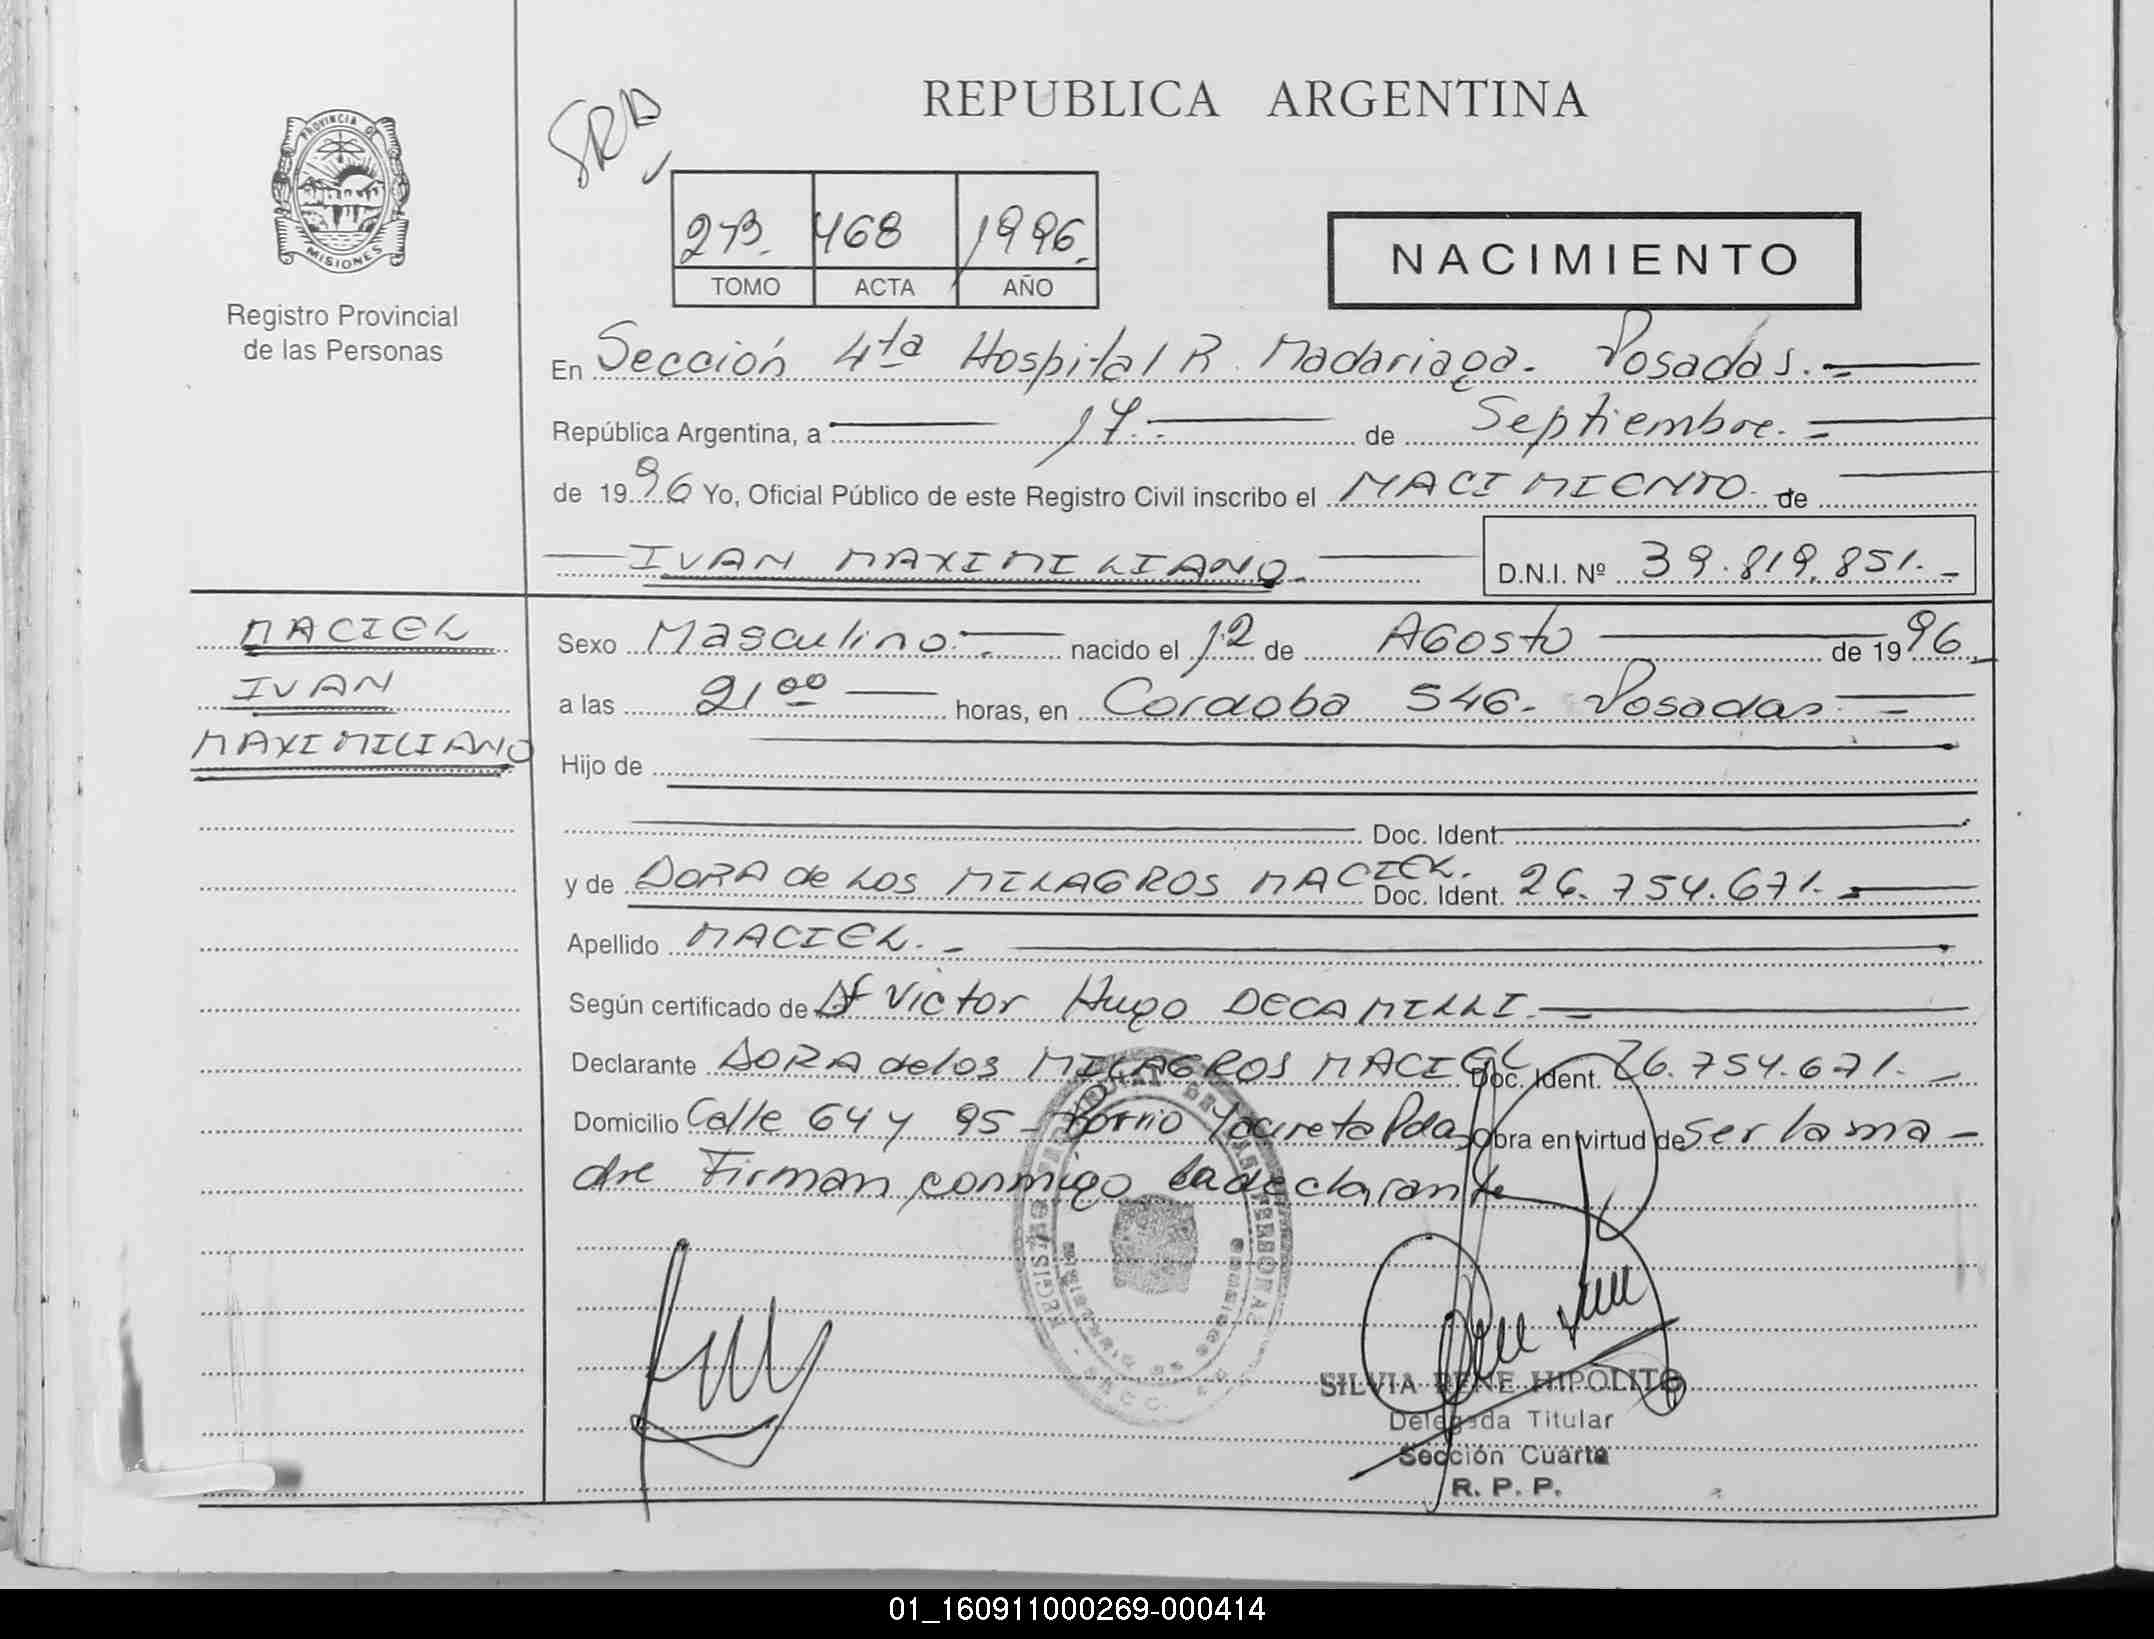 REPUBLICA ARGENTINA
PROVINCIA DE
MISIONES
Registro Provincial
de las Personas
SRD
468 1996.
TOMO ACTA AÑO
NACIMIENTO
En Sección 4ta Hospital R. Madariaga. Posadas.=
República Argentina, a 17. de Septiembre.=
de 1996 Yo, Oficial Público de este Registro Civil inscribo el NACIMIENTO. de
IVAN MAXIMILIANO.
D.N.I. Nº 39.819.851.-
MACIEL
IVAN
MAXIMILIANO
Sexo Masculino.- nacido el 12 de AGosto de 1996.
a las 21⁰⁰ horas, en Cordoba 546. Posadas=
Hijo de
Doc. Ident.
y de DORA de LOS MILAGROS MACIEL. Doc. Ident. 26.754.671.-
Apellido MACIEL.-
Según certificado de Victor Hugo DECAMILLI.=
Declarante DORA de los MILAGROS MACIEL Doc. Ident. 26.754.671.-
Domicilio Calle 64 y 95- Barrio Yacireta Pdas Obra en virtud de ser la ma-
dre Firman conmigo la declarante
SILVIA RENE HIPOLITO
Delegada Titular
Sección Cuarta
R. P. P.
01_160911000269-000414